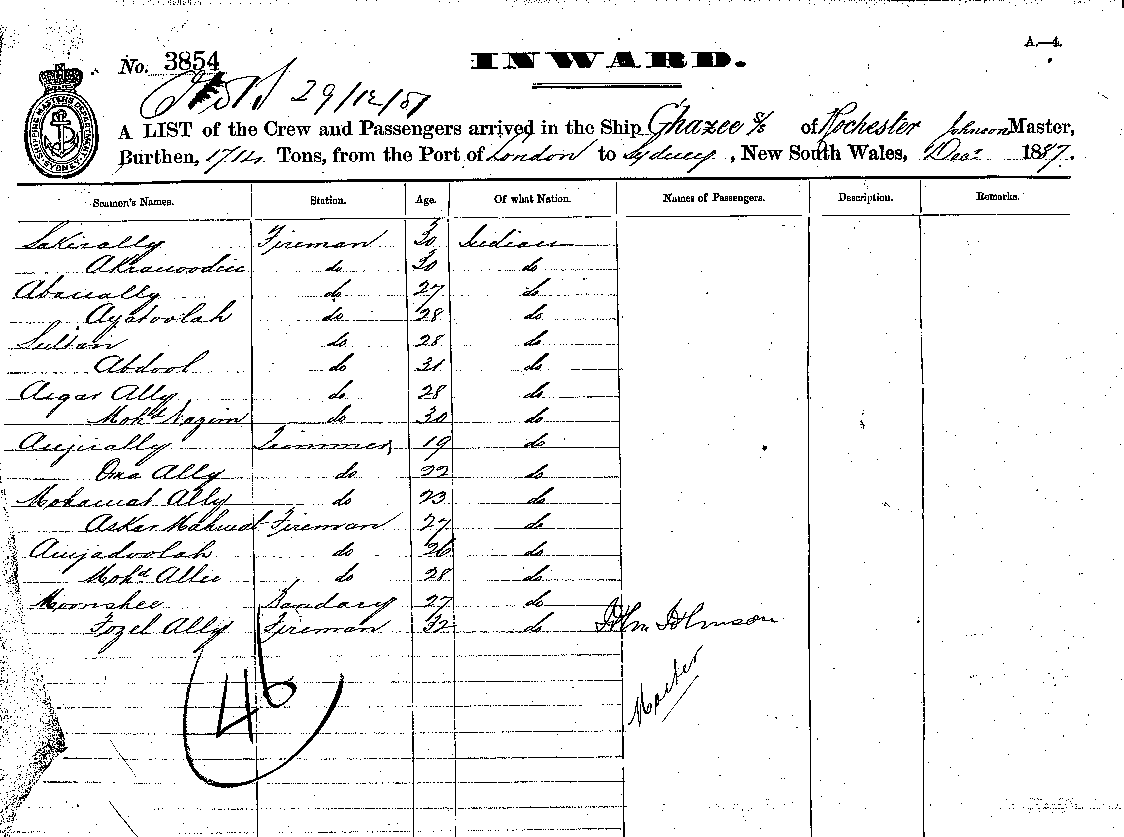 A.—4.
No. 3854 INWARD.
29/12/87
A LIST of the Crew and Passengers arrived in the Ship Ghazee S/S of Rochester Johnson Master,
Burthen, 1714 Tons, from the Port of London to Sydney, New South Wales, Decr 1887.
Seamen's Names. Station. Age. Of what Nation. Names of Passengers. Description. Remarks.
Sakirally Fireman 30 Indian
Akramoodin do 30 do
Abasally do 27 do
Ayatoolah do 28 do
Sultan do 28 do
Abdool do 31 do
Asgar Ally do 28 do
Mohd Nazim do 30 do
Trimmer 19 do
Oma Ally do 22 do
Mohamat Ally do 23 do
Askar Mahmat Fireman 27 do
Amjadoolah do 26 do
Mohd Allee do 28 do
Moonshee Bandary 27 do
Fozel Ally Fireman 32 do John Johnson
Master
46